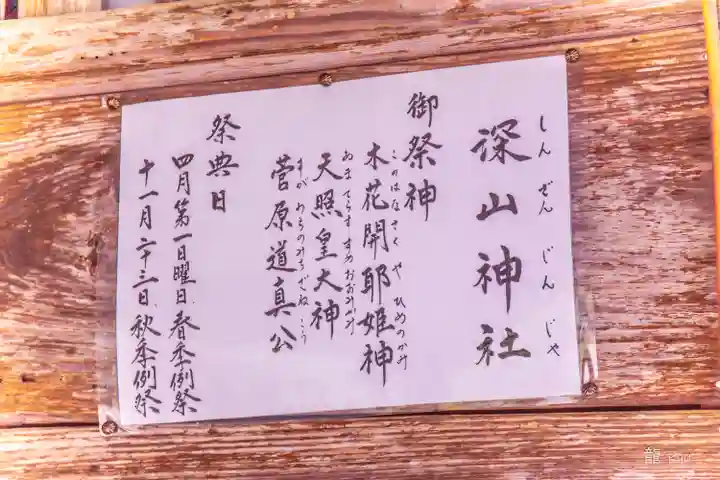 深山神社
しんぜんじんじゃ
御祭神
木花開耶姫神
このはなさくやひめのかみ
天照皇大神
あまてらすすめおおみかみ
菅原道真公
すがわらのみちざねこう
祭典日
四月第一日曜日、春季例祭
十一月二十三日、秋季例祭
龍